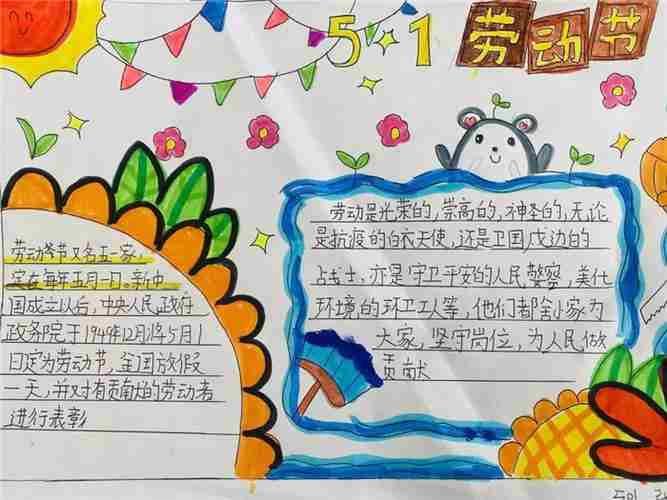 5·1 劳动节
劳动爷节又名五一家,
定在每年五月一日。新中
国成立以台,中央人民政府
政务院于1949年12月将5月1
日定为劳动节,全国放假
一天,并对有贡献的劳动者
进行表彰
劳动是光荣的,崇高的,神圣的,无论
是抗疫的白衣天使,还是卫国戍边的
战士,亦是守卫平安的人民警察,美化
环境的环卫工人等,他们都舍小家为
大家,坚守岗位,为人民做
贡献